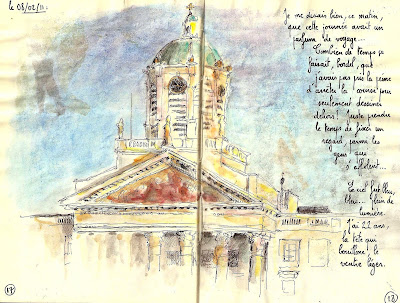 le 08/02/11.
Je me disais bien, ce matin,
que cette journée avait un
parfum de voyage...
Combien de temps ça
faisait, bordel, que
j'avais pas pris la peine
d'arrêter la course pour
seulement dessiner
dehors. Juste prendre
le temps de fixer un
regard parmi les
gens qui
s'étiolent...
Le ciel fut bleu,
bleu... plein de
lumière.
J'ai 22 ans,
la tête qui
bouillonne, le
ventre léger.
17
18